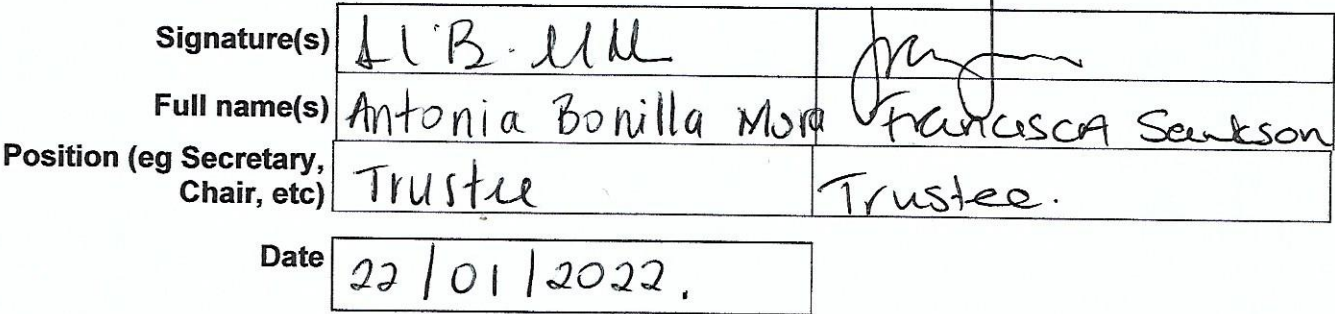 Signature(s)
Full name(s) Antonia Bonilla Mora Francisca
Position (eg Secretary, Trustee Trustee.
Chair, etc)
Date 22/01/2022.